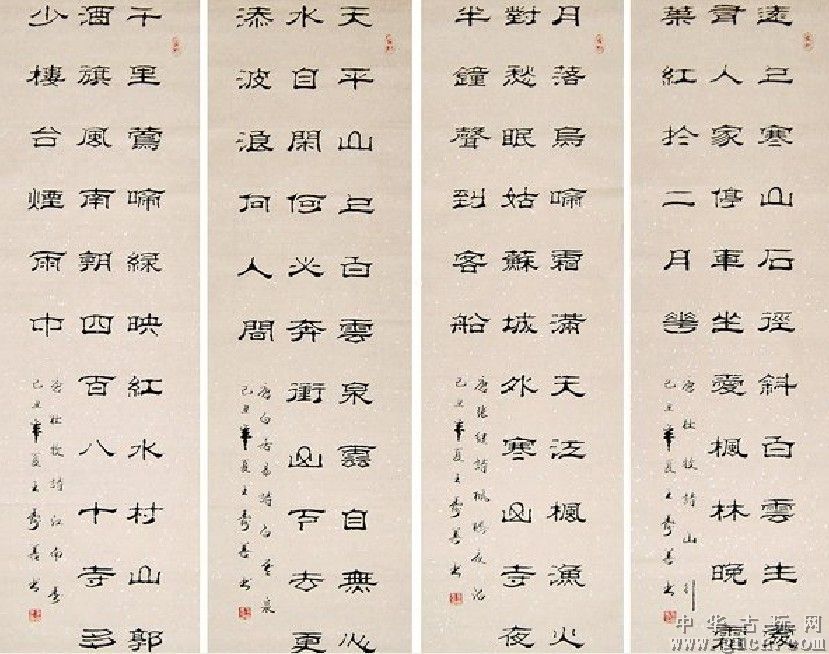 遠上寒山石徑斜白雲生處
有人家停車坐愛楓林晚霜
葉紅於二月花
唐杜牧詩山行
己丑年夏王善書
月落烏啼霜滿天江楓漁火
對愁眠姑蘇城外寒山寺夜
半鐘聲到客船
唐張繼詩楓橋夜泊
己丑年夏王善書
天平山上白雲泉雲自無心
水自閑何必奔衝山下去更
添波浪向人間
唐白居易詩白雲泉
己丑年夏王善書
千里鶯啼綠映紅水村山郭
酒旗風南朝四百八十寺多
少樓台煙雨中
唐杜牧詩江南春
己丑年夏王善書
中华古玩网
www.gucn.com